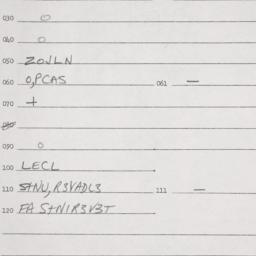 030 0
040 0
050 ZOJLN
060 O,PCAS 061 —
070 +
080
090 0
100 LECL
110 S+NU,R3VADL3 111 —
120 FA S+N1R3V3T